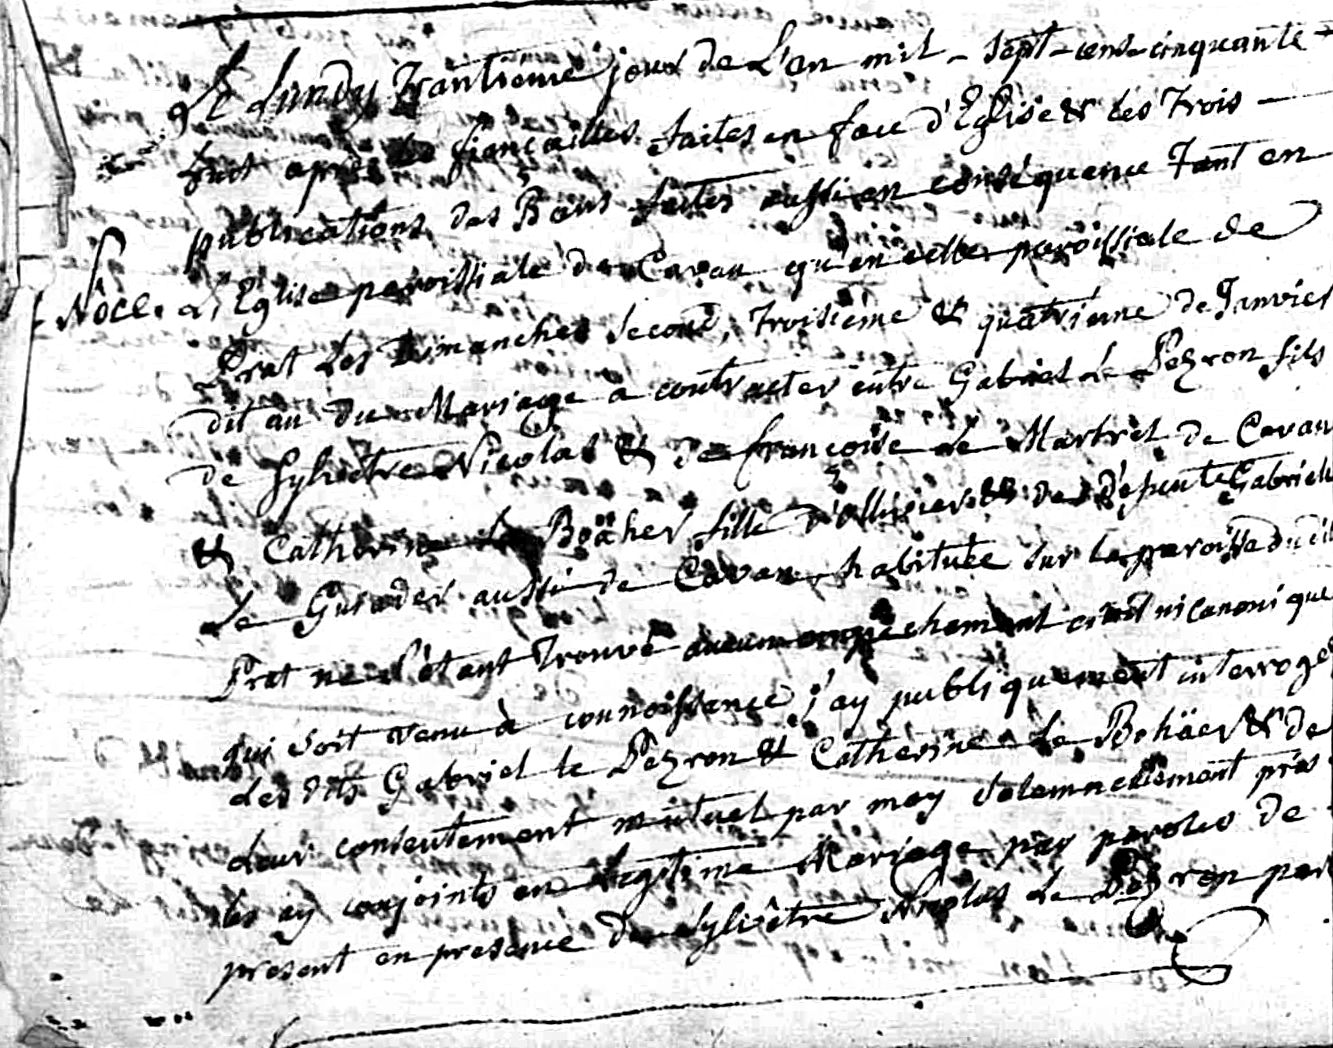 Le Lundy Trantieme jour de L'en mil - sept - cens cinquante -
huit après les fiançailles faites en face d'Eglise & les Trois
publications des Bans faites aussi en conséquence Tant en
Nôce. L'Eglise paroissiale de Cavan qu'en celle paroissiale de
Prat les Dimanches second, Troisieme & quatrième de Janvier
dit an du Mariage a contracter entre Gabriel Le Pezron fils
de Sylvestre Nicolas & de françoise Le Martret de Cavan
& Catherine Le Boäher fille d'Ollivier & de dépeunte Gabrielle
Le Gurader aussi de Cavan habituée sur la paroisse du dit
Prat ne s'étant Trouvé aucun empechement civil ni canonique
qui soit venu à connoissance j'ay publiquement interrogé
les dits Gabriel le Pezron & Catherine Le Bohäer & de
leur consentement mutuel par moy solemnellement pris
les ay conjoints en legitime Mariage par paroles de
present en presence de Sylvêtre Nicolas Le Pezron per